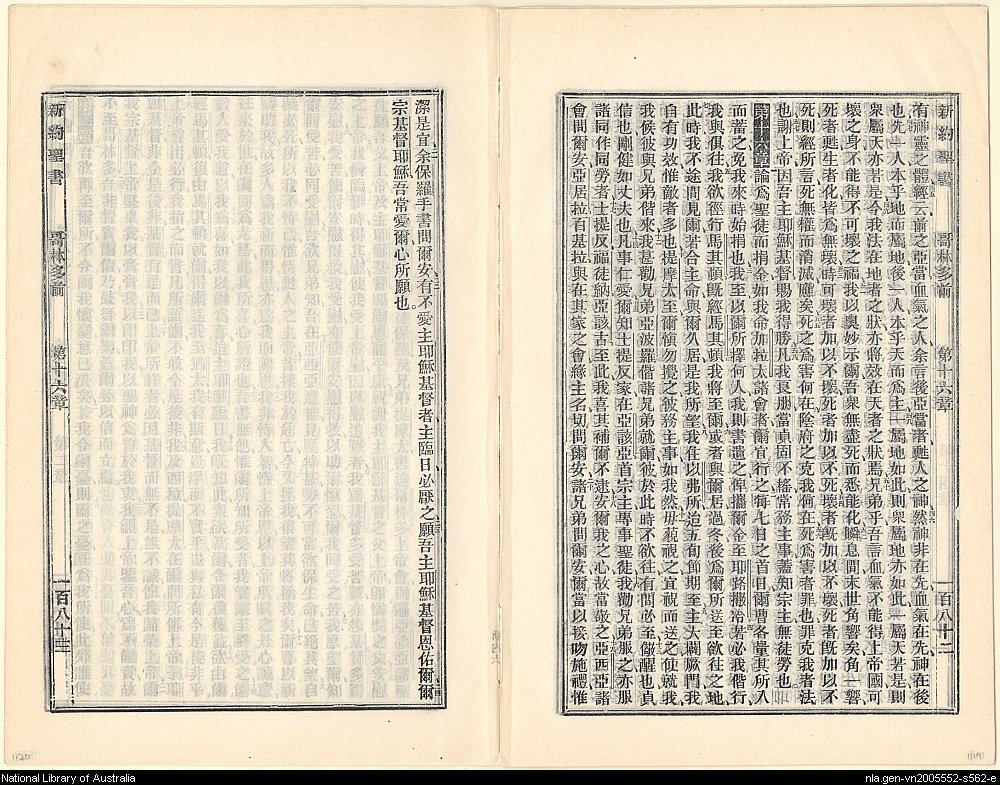 新約聖書 哥林多前 第十六章 一百八十二
有神靈之體經云前之亞當血氣之人余言後亞當者甦人之神然神非在先血氣在先神在後
也先一人本乎地而屬地後一人本乎天而爲主屬地如此則衆屬地亦如此屬天若是則
衆屬天亦若是今我法在地者之狀亦將效在天者之狀焉兄弟乎吾言血氣不能得上帝國可
壞之身不能得不可壞之福我以奧妙示爾吾衆無盡死而悉能化瞬息間末世角響矣角一響
死者甦生者化者爲無壞時可壞者加以不壞死者加以不死壞者旣加以不壞死者旣加以不
死則經所言死無權而消滅應矣死之爲害何在陰府之克我何在死爲害者罪也罪克我者法
也謝上帝因吾主耶穌基督賜我得勝凡我良朋當貞固不搖常務主事蓋知宗主無徒勞也
第十六章論爲聖徒而捐金如我命加拉太諸會者爾宜行之每七日之首日爾曹各量其所入
而蓄之免我來時始捐也我至以爾所擇何人我則書遣之俾攜爾金至耶路撒冷若必我偕行
我與俱往我欲徑行馬其頓旣經馬其頓我將至爾或者與爾居過冬後爲爾所送至欲往之地
此時我不途間見爾若合主命與爾久居是我所望我在以弗所迨五旬節期至主大闢厥門我
自有功效惟敵者多也提摩太至爾愼勿擾之彼務主事如我然毋藐視之宜祝而送之使就我
我候彼與兄弟偕來我甚勸兄弟亞波羅偕諸兄弟就爾彼於此時不欲往有間必至儆醒也貞
信也剛健如丈夫也凡事仁愛爾知士提反家在亞該亞首宗主專事聖徒我勸兄弟服之亦服
諸同作同勞者士提反福徒納亞該古至此我喜其補爾不逮安爾我之心故當敬之亞西亞諸
會問爾安亞居拉百基拉與在其家之會緣主名切問爾安諸兄弟問爾安爾當以接吻施禮惟
潔是宜余保羅手書問爾安有不愛主耶穌基督者主臨日必厭之願吾主耶穌基督恩佑爾爾
宗基督耶穌吾常愛爾心所願也。
新約聖書 哥林多前 第十六章 一百八十三
National Library of Australia
nla.gen-vn2005552-s562-e